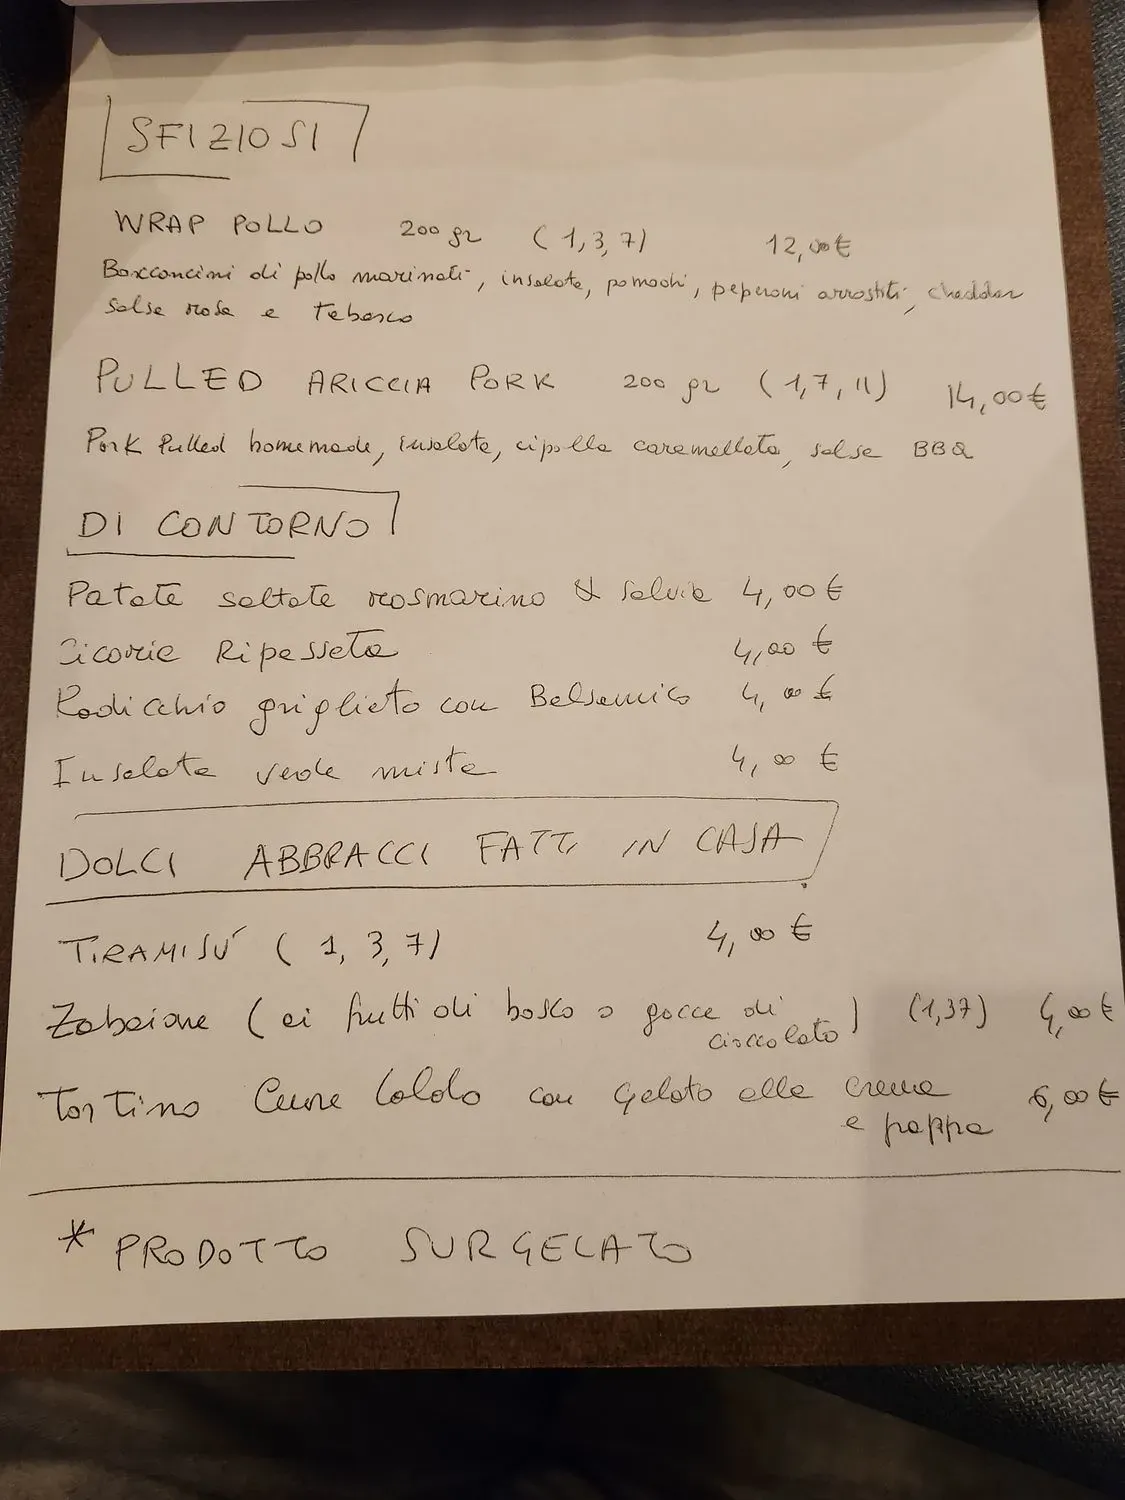 SFIZIOSI
WRAP POLLO 200 gr (1,3,7) 12,00€
Bocconcini di pollo marinati, insalata, pomodori, peperoni arrostiti, cheddar
salsa rosa e tabasco
PULLED ARICCIA PORK 200 gr (1,7,11) 14,00€
Pork Pulled homemade, insalata, cipolla caramellata, salsa BBQ
DI CONTORNO
Patate saltate rosmarino & salvia 4,00€
Cicoria Ripassata 4,00 €
Radicchio grigliato con Balsamico 4,00 €
Insalata verde mista 4,00 €
DOLCI ABBRACCI FATTI IN CASA
TIRAMISU' (1, 3, 7) 4,00 €
Zabaione (ai frutti di bosco o gocce di
cioccolato) (1,37) 4,00€
Tortino Cuore Caldo con gelato alla crema
e panna 6,00€
* PRODOTTO SURGELATO